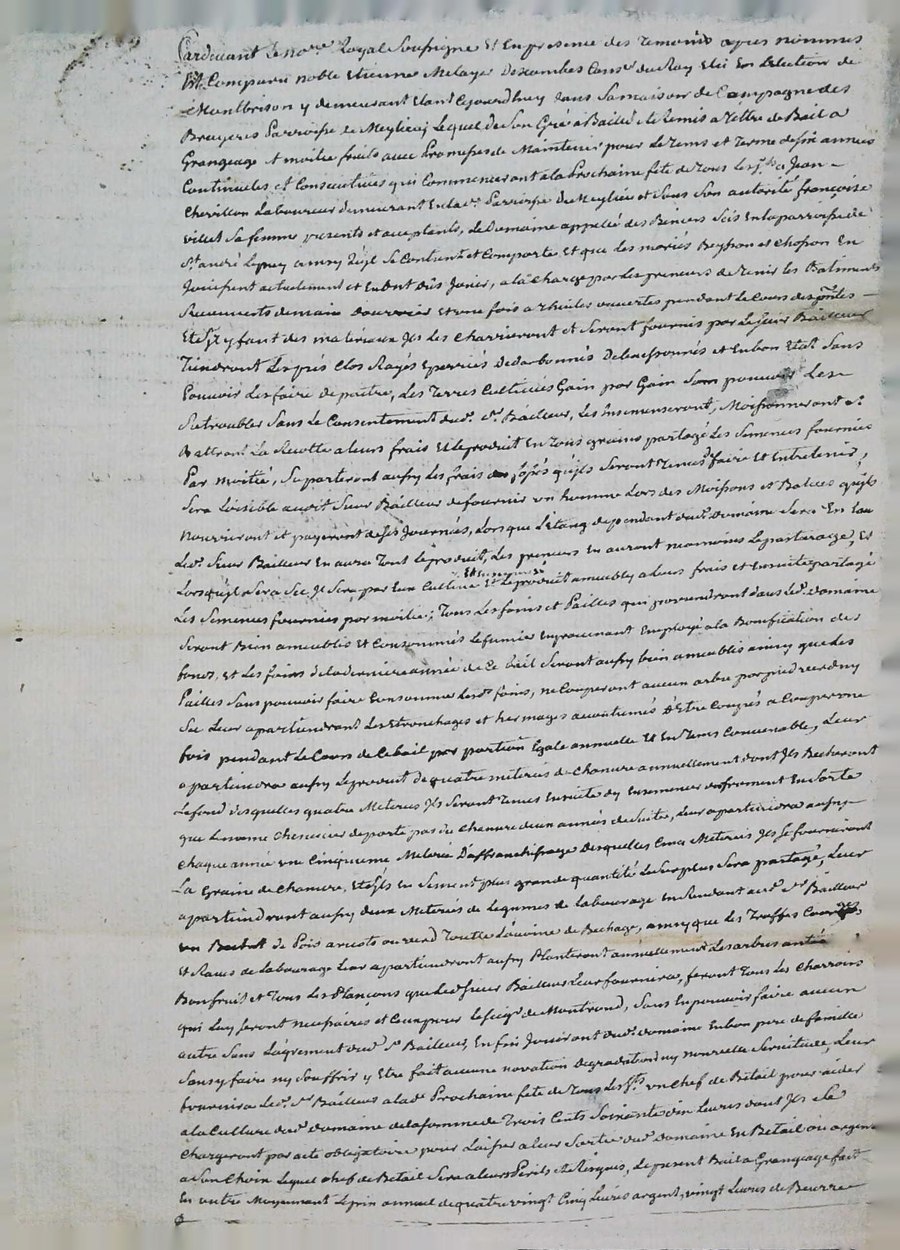 Pardevant le no.re Royal Soussigné Et En presence des temoins apres nommes
Est Comparu noble Etienne Melayer Descombes Cons.er du Roy Elû En Lelection de
Montbrison y demeurant Etant Ejourdhuy dans Sa maison de Campagne des
Bruyeres Parroisse de Meylieu, Lequel de Son Gré a Baillé et Remis a Tittre de Bail a
Grangeage Et moitie fruits avec Promesses de Maintenir pour Le tems et terme de six années
Continuelles et Consecutives qui Commenceront a la Prochaine fete de Tous les S.ts a Jean
Chevillon Laboureur demeurant En lad.e Parroisse de Meylieu et Sous Son autorité françoise
villet Sa femme presents et acceptants, Le Domaine appellé des Scis En la parroisse de
S.t andré Lepuy ainsy qûil Se Contient et Comporte Et que les mariés Beysson et Chosson En
Jouissent actuellement et En ont dûs Jouir, a la Charge par les preneurs de tenir les Batiments
de main douvrier et une fois a thuiles ouvertes pendant le Cours des
Et s'il y faut des materiaux Jls les Charrieront et Seront fournis par Le Sieur Bailleur
Tiendront Les prés Clos Rayés Eperriés Et En bon Etat Sans
Pouvoir Les faire depaitre, Les Terres Cultivées Gain par Gain Sans pouvoir Les
Retroubler Sans Le Consentement dud. S.r Bailleur, Les Ensemenseront, Moissonneront et
Battront La Recolte a leurs frais Et le produit En tous grains partagé Les Semences fournies
Par moitié, Suporteront aussy Les frais des fossés qu'jls Seront tenus faire Et Entretenir,
Sera Loisible audit Sieur Bailleur de fournir un homme Lors des Moissons et Battues qu'jls
nourriront et payeront de ses Journées, Lorsque L'Etang dependant dud. Domaine Sera En Eau
Led. Sieur Bailleur En aura Tout le produit, Les preneurs En auront neanmoins Le paturage, Et
Lorsqu'jl Sera Sec Jl Sera par Eux Cultivé Et Ensemencé Et Le produit ameubly a Leurs frais Et Ensuite partagé
Les Semences fournies par moitié; Tous Les foins et Pailles qui proviendront dans Led. domaine
Seront Bien ameublis Et Consommés Le fumier En provenant Employé a la Bonification des
fonds, et Les foins de la derniere année de Ce Bail Seront aussy bien ameublis ainsy que Les
Pailles Sans pouvoir faire Consommer Lesd. foins, ne Couperont aucun arbre par pied verd ny
Sec Leur apartiendront Les Etronchages et hermages accoutumés D'Etre Coupés a Couper une
fois pendant Le Cours de Ce bail par portion Egale annuelle Et En tems Convenable, Leur
apartiendra aussy Le produit de quatre meterées de Chanvre annuellement dont Jls Becheront
Le fond desquelles quatre Meterées Jls Seront tenus Ensuite dy Ensemencer de froment En Sorte
que Le meme Chenevier ne porte pas du Chanvre deux années de Suite, Leur apartiendra aussy
Chaque année une Cinquieme Meterée D'affranchissage desquelles Cinq Meterées Jls Se fourniront
La Graine de Chanvre, Et s'jls En Sement plus grande quantité Le Surplus Sera partagé, Leur
apartiendront aussy deux Meterées de Legumes de Labourage En Rendant aud. S.r Bailleur
un Bichet de Pois ou verd Toutte de Bechage, ainsy que Les Truffes
Et Raves de Labourage Leur apartiendront aussy Planteront annuellement Les arbres antés
Bon fruit et Tous Les Plançons que Led. Sieur Bailleur Leur fournira, feront Tous Les Charrois
qui Luy Seront necessaires et Ceux pour Le Seig.r de Montrond, Sans En pouvoir faire aucun
autre Sans L'agrement dud. S.r Bailleur, En fin Jouiront dud. domaine En bon pere de famille
Sans y faire ny Souffrir y Etre fait aucune novation degradation ny nouvelle Servitude, Leur
fournira Led. S.r Bailleur a lad. Prochaine fete de Tous Les S.ts un Chef de Betail pour aider
a la Culture dud. domaine de la somme de Trois Cents Soixante dix Livres dont Jls Se
Chargeront par acte obligatoire pour Laisser a leur Sortie dud. domaine En Betail ou argent
a Son Choix Lequel chef de Betail Sera a leurs Perils et Risques, Le present Bail a Grangeage fait
En outre Moyennant Le prix annuel de quatre vingt Cinq Livres argent, vingt Livres de Beurre